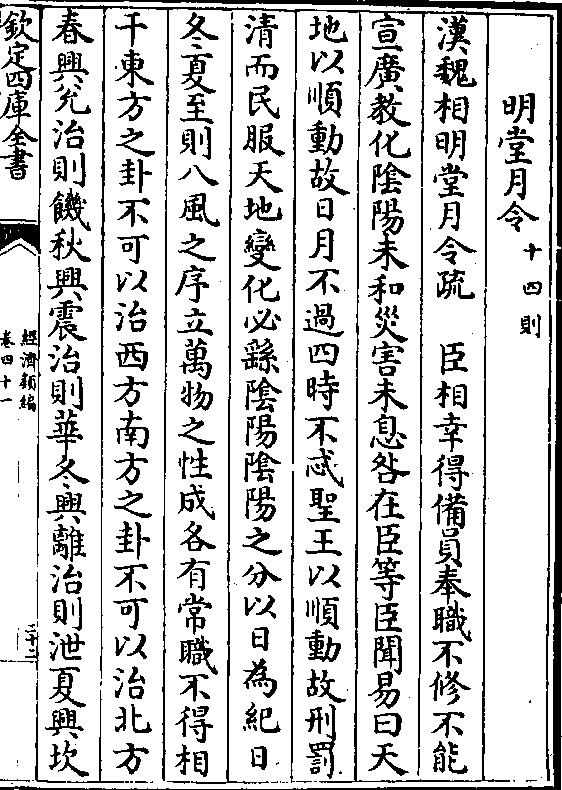 明堂月令十四則
漢魏相明堂月令疏　臣相幸得備員奉職不修不能
宣廣教化陰陽未和災害未息咎在臣等臣聞易曰天
地以順動故日月不過四時不忒聖王以順動故刑罰
清而民服天地變化必繇陰陽陰陽之分以日為紀日
冬夏至則八風之序立萬物之性成各有常職不得相
干東方之卦不可以治西方南方之卦不可以治北方
春興兊治則饑秋興震治則華冬興離治則泄夏興坎
欽定四庫全書
經濟類編
卷四十一
二十二